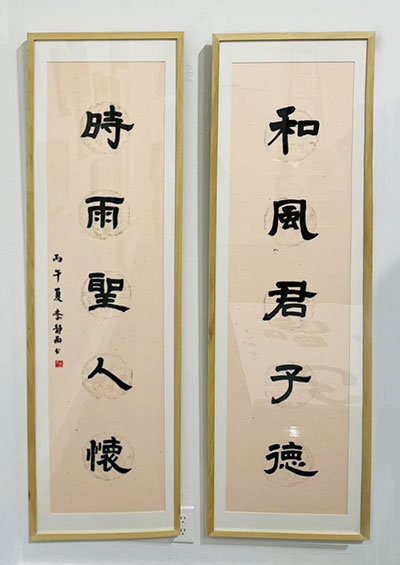 和風君子德
時雨聖人懷
丙午夏 李靜雨書